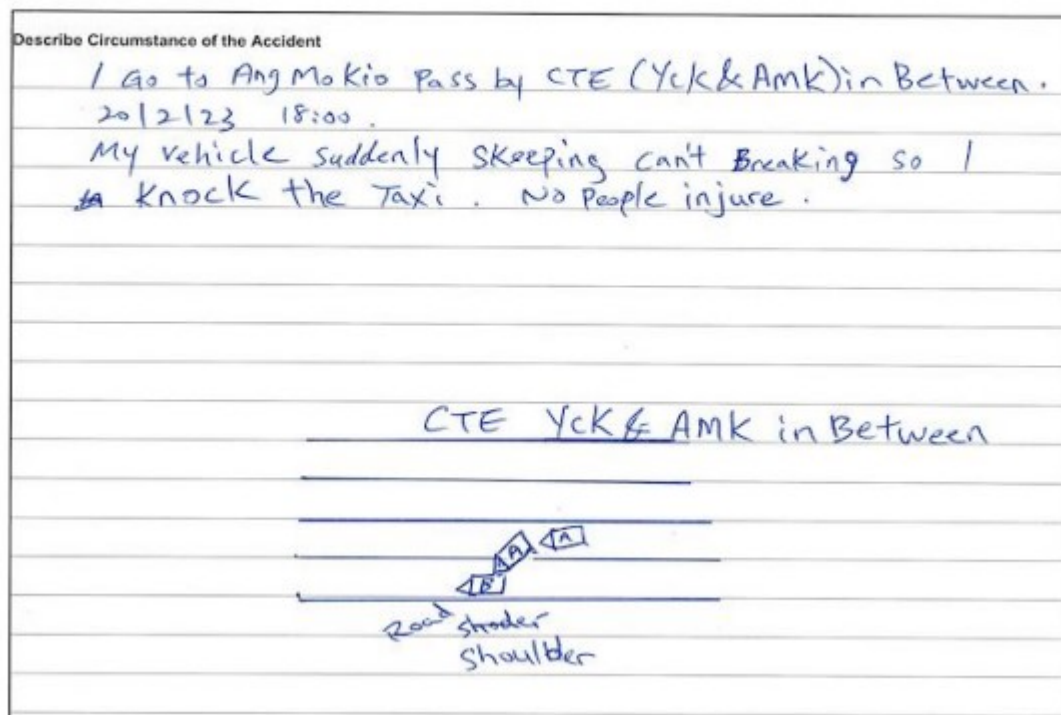 Describe Circumstance of the Accident
I Go to Ang Mo Kio Pass by CTE (Yck & Amk) in Between.
20/2/23 18:00.
My vehicle suddenly skeeping can't Breaking so I
Knock the Taxi. No People injure.
CTE YCK & AMK in Between
A A
B
Road shoder
shoulder